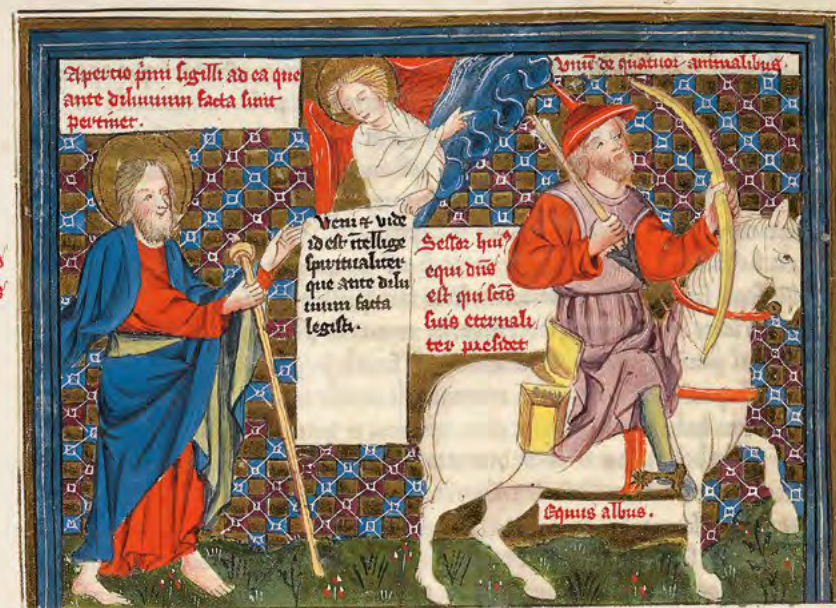 Apercio p̄mi sigilli ad ea que
ante diluuium facta sunt
pertinet.
Vnū de quatuor animalibus.
Veni ⁊ vide
id est ītellige
spiritualiter
que ante dilu
uium facta
legisti.
Sessor huiꝰ
equi dn̄s
est qui sc̄is
suis eternali
ter presidet
Equus albus.